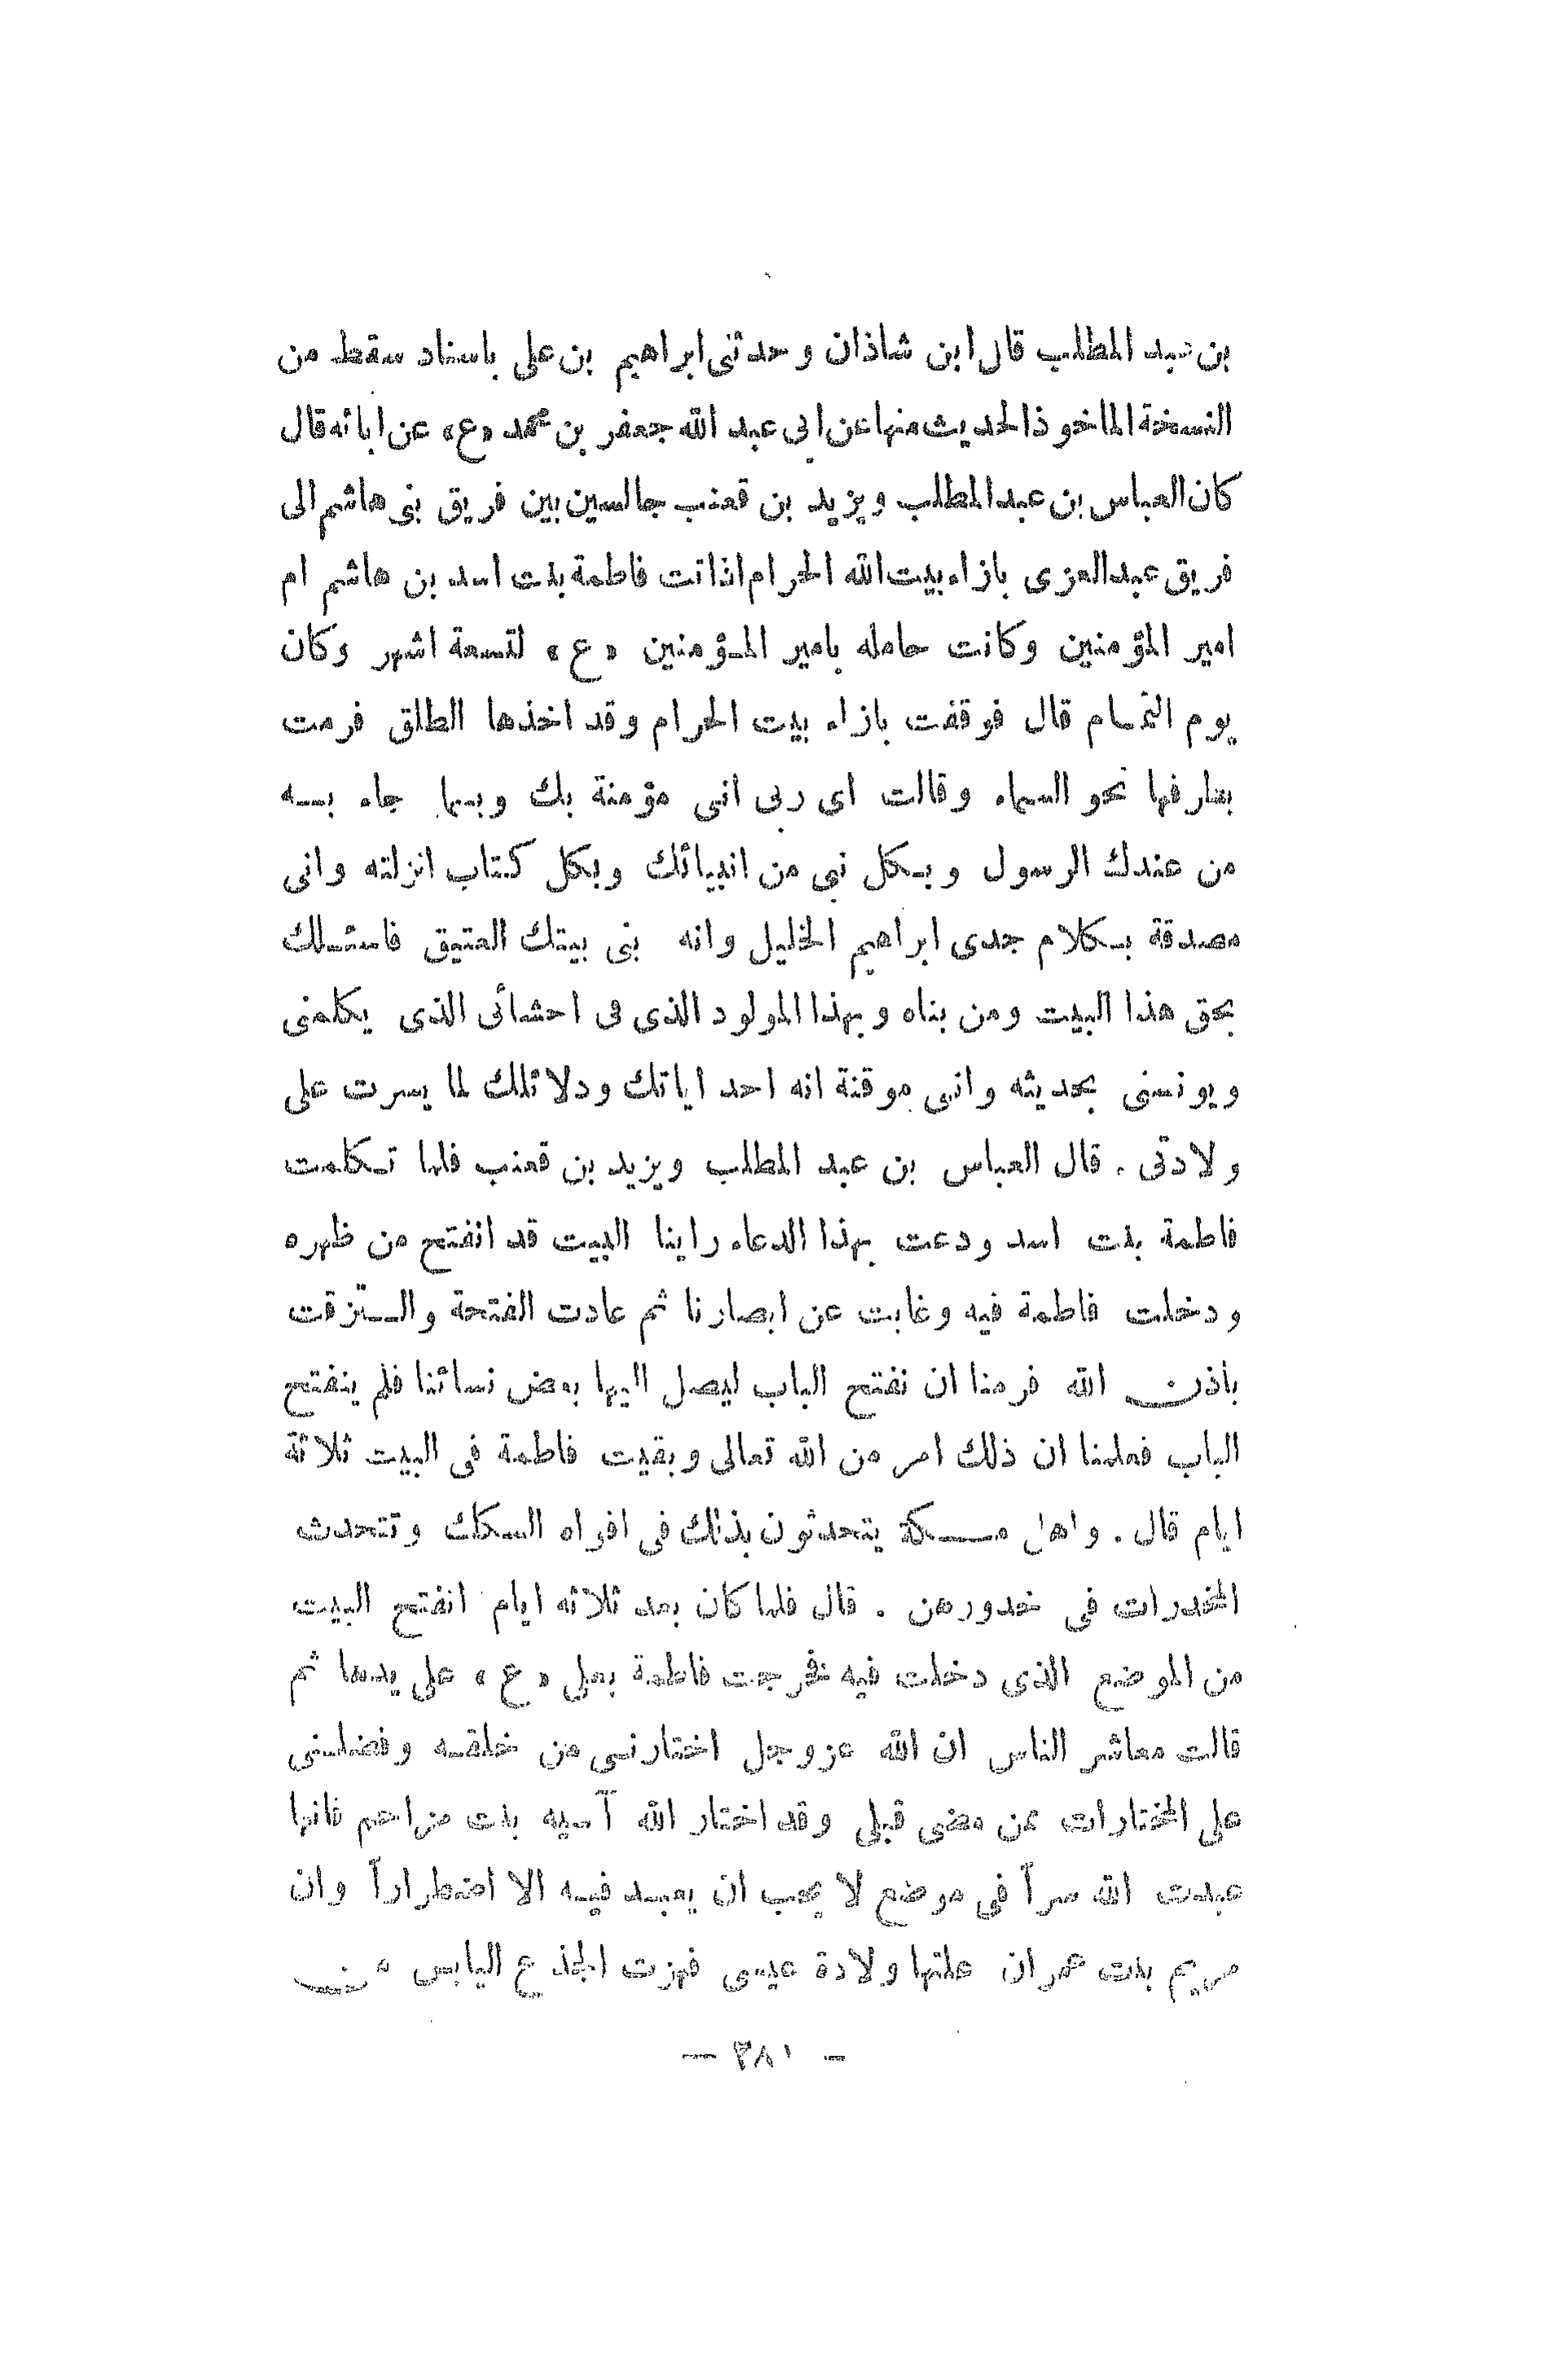 بن عبد المطلب قال ابن شاذان وحدثنى ابراهيم بن على باسناد سقط من
النسخة الماخوذ الحديث منها عن ابى عبد الله جعفر بن محمد «ع» عن ابائه قال
كان العباس بن عبد المطلب ويزيد بن قعنب جالسين بين فريق بنى هاشم الى
فريق عبد العزى بازاء بيت الله الحرام اذا تت فاطمة بنت اسد بن هاشم ام
امير المؤمنين وكانت حامله بامير المؤمنين «ع» لتسعة اشهر وكان
يوم التمام قال فوقفت بازاء بيت الحرام وقد اخذها الطلق فرمت
بطرفها نحو السماء وقالت اى ربى انى مؤمنة بك وبما جاء به
من عندك الرسول وبكل نبى من انبيائك وبكل كتاب انزلته وانى
مصدقة بكلام جدى ابراهيم الخليل وانه بنى بيتك العتيق فاسئلك
بحق هذا البيت ومن بناه وبهذا المولود الذى فى احشائى الذى يكلمنى
ويونسنى بحديثه وانى موقنة انه احد اياتك ودلائلك لما يسرت على
ولادتى . قال العباس بن عبد المطلب ويزيد بن قعنب فلما تكلمت
فاطمة بنت اسد ودعت بهذا الدعاء راينا البيت قد انفتح من ظهره
ودخلت فاطمة فيه وغابت عن ابصارنا ثم عادت الفتحة والتزقت
بأذن الله فرمنا ان نفتح الباب ليصل اليها بعض نسائنا فلم ينفتح
الباب فعلمنا ان ذلك امر من الله تعالى وبقيت فاطمة فى البيت ثلاثة
ايام قال . واهل مكة يتحدثون بذلك فى افواه السكك وتتحدث
المخدرات فى خدورهن . قال فلما كان بعد ثلاثه ايام انفتح البيت
من الموضع الذى دخلت فيه فخرجت فاطمة بعلى «ع» على يدها ثم
قالت معاشر الناس ان الله عز وجل اختارنى من خلقه وفضلنى
على المختارات ممن مضى قبلى وقد اختار الله آسيه بنت مزاحم فانها
عبدت الله سرآ فى موضع لا يجب ان يعبد فيه الا اضطرارآ وان
مريم بنت عمران علتها ولادة عيسى فهزت الجذع اليابس من
— ٣٨١ —